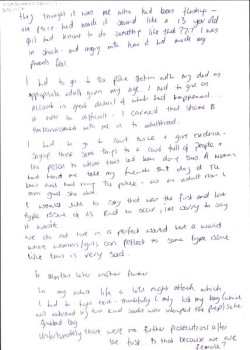 they thought it was me who had been flashing -
the police had made it sound like a 13 year old
girl had known to do something like that??! I was
in shock and angry with how it had made my
parents feel.
I had to go to the police station with my dad as
appropriate adult given my age. I had to give an
account in great detail of what had happened...
it was so difficult. I carried that shame &
embarrassment with me in to adulthood.
I had to go to court twice + give evidence -
saying these same things to a court full of people +
the person to whom this had been done to. A women
had heard me tell my friends that day at the
bus and had rung the police - as an adult now I
am glad she did.
I would like to say that was the first and last
type issue of its kind to occur, I'm sorry to say
it wasn't.
We do not live in a perfect world but a world
where women/girls can reflect to some type issue
like this is very sad.
months later another flasher
In my adult life a late night attack which
I had to fight back - thankfully I only lost my bag (which
was retrieved by two kind souls who chased the people who
grabbed bag
Unfortunately there were no further prosecutions after
the first. Is that because we are
female?